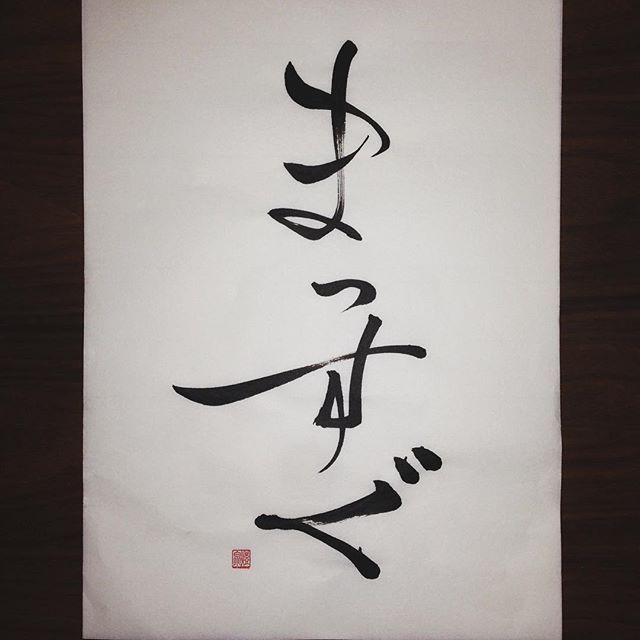 まっすぐ